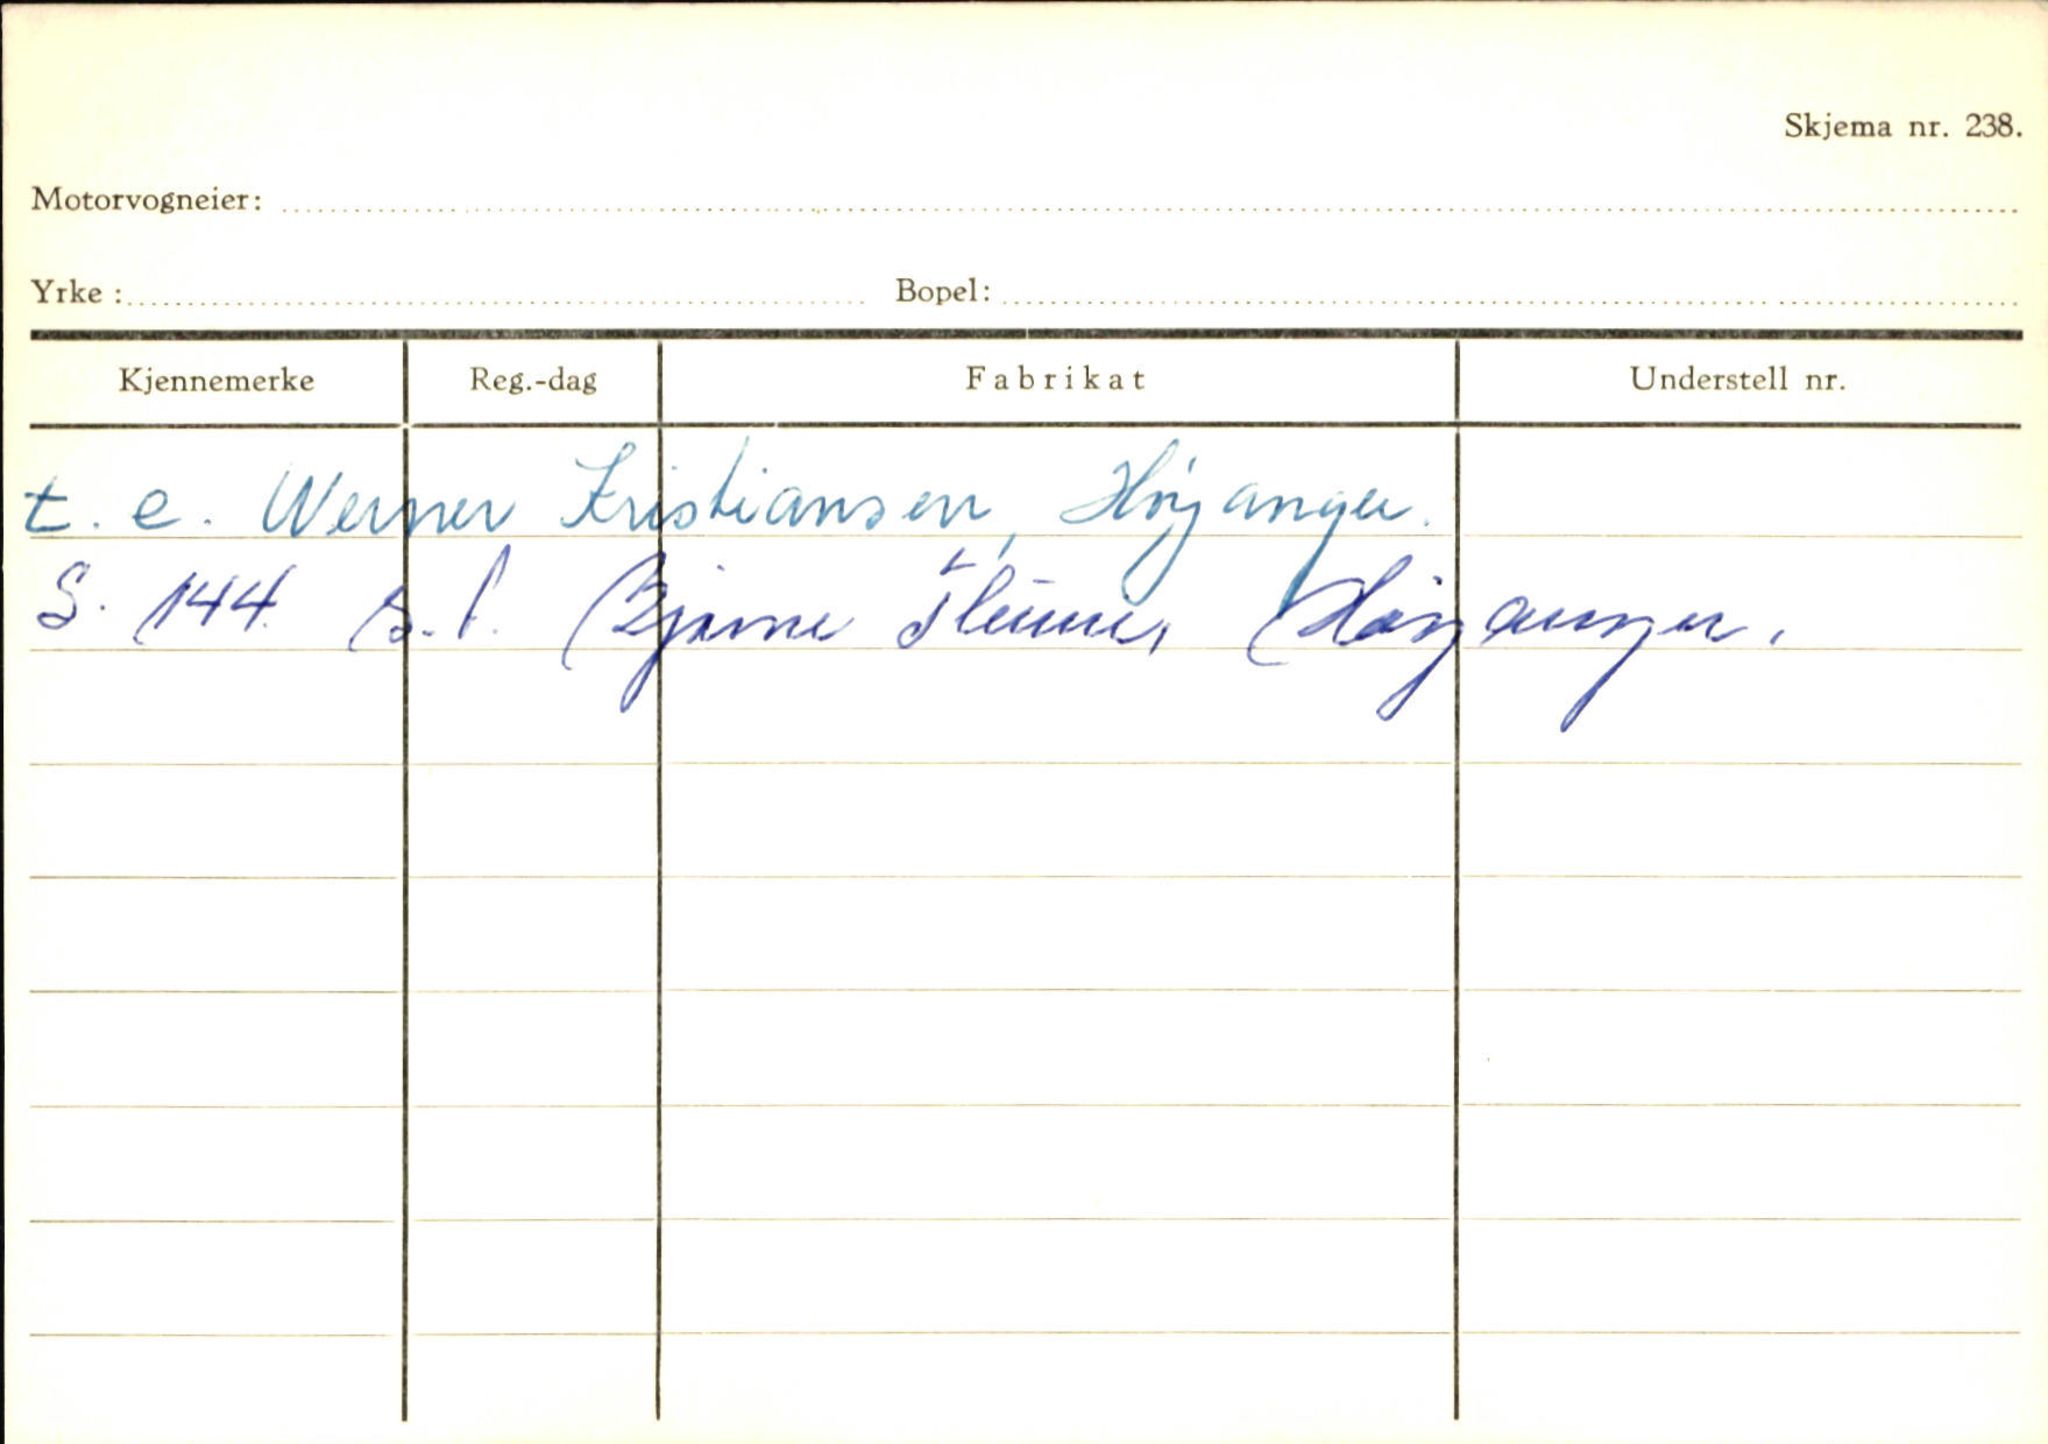 Skjema nr. 238.
Motorvogneier:
Yrke: Bopel:
Kjennemerke Reg.-dag Fabrikat Understell nr.
t. e. Werner Kristiansen, Høyanger.
S. 144. Bjarne Høyanger.